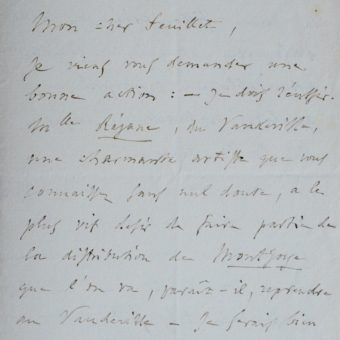 Mon cher Feuillet,
Je viens vous demander une
bonne action : – je dois réussir.
Mlle Réjane, du Vaudeville,
une charmante artiste que vous
connaissez sans nul doute, a le
plus vif désir de faire partie de
la distribution de Montjoye
que l'on va, paraît-il, reprendre
au Vaudeville – Je serais bien